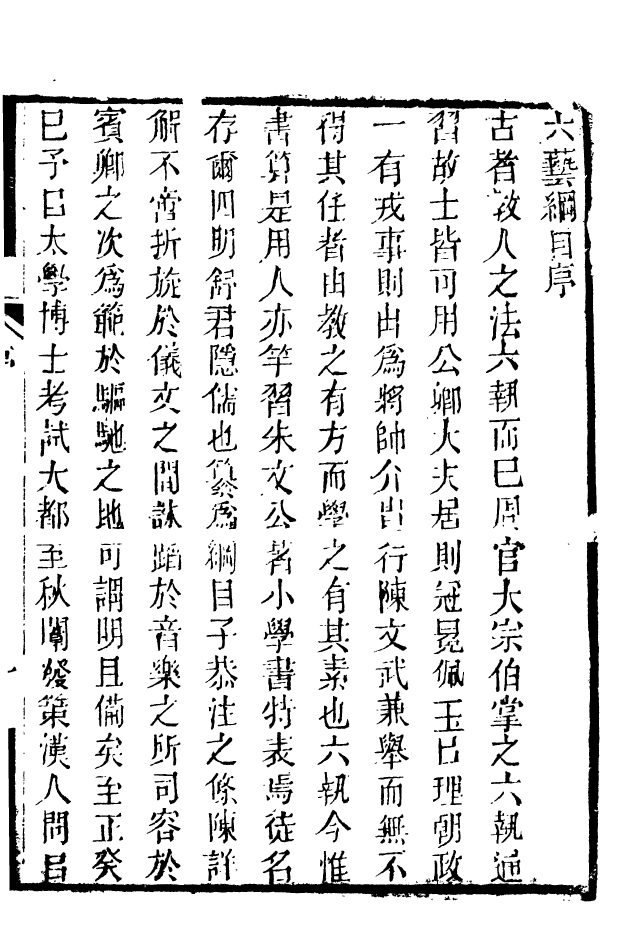 六藝綱目序
古者敎人之法六埶而已周官大宗伯掌之六埶通
習故士皆可用公卿大夫居則冠冕佩玉㠯理朝政
一有戎事則出爲將帥介胄行陳文武兼舉而無不
得其任者由教之有方而學之有其素也六埶今惟
書算是用人亦罕習朱文公著小學書特表焉徒名
存爾四明舒君隱儒也纂爲綱目子恭注之條陳詳
解不啻折旋於儀文之間詠蹈於音樂之所司容於
賓卿之次爲範於驅馳之地可謂明且備矣至正癸
巳予㠯太學博士考試大都至秋闈發策漢人問㠯